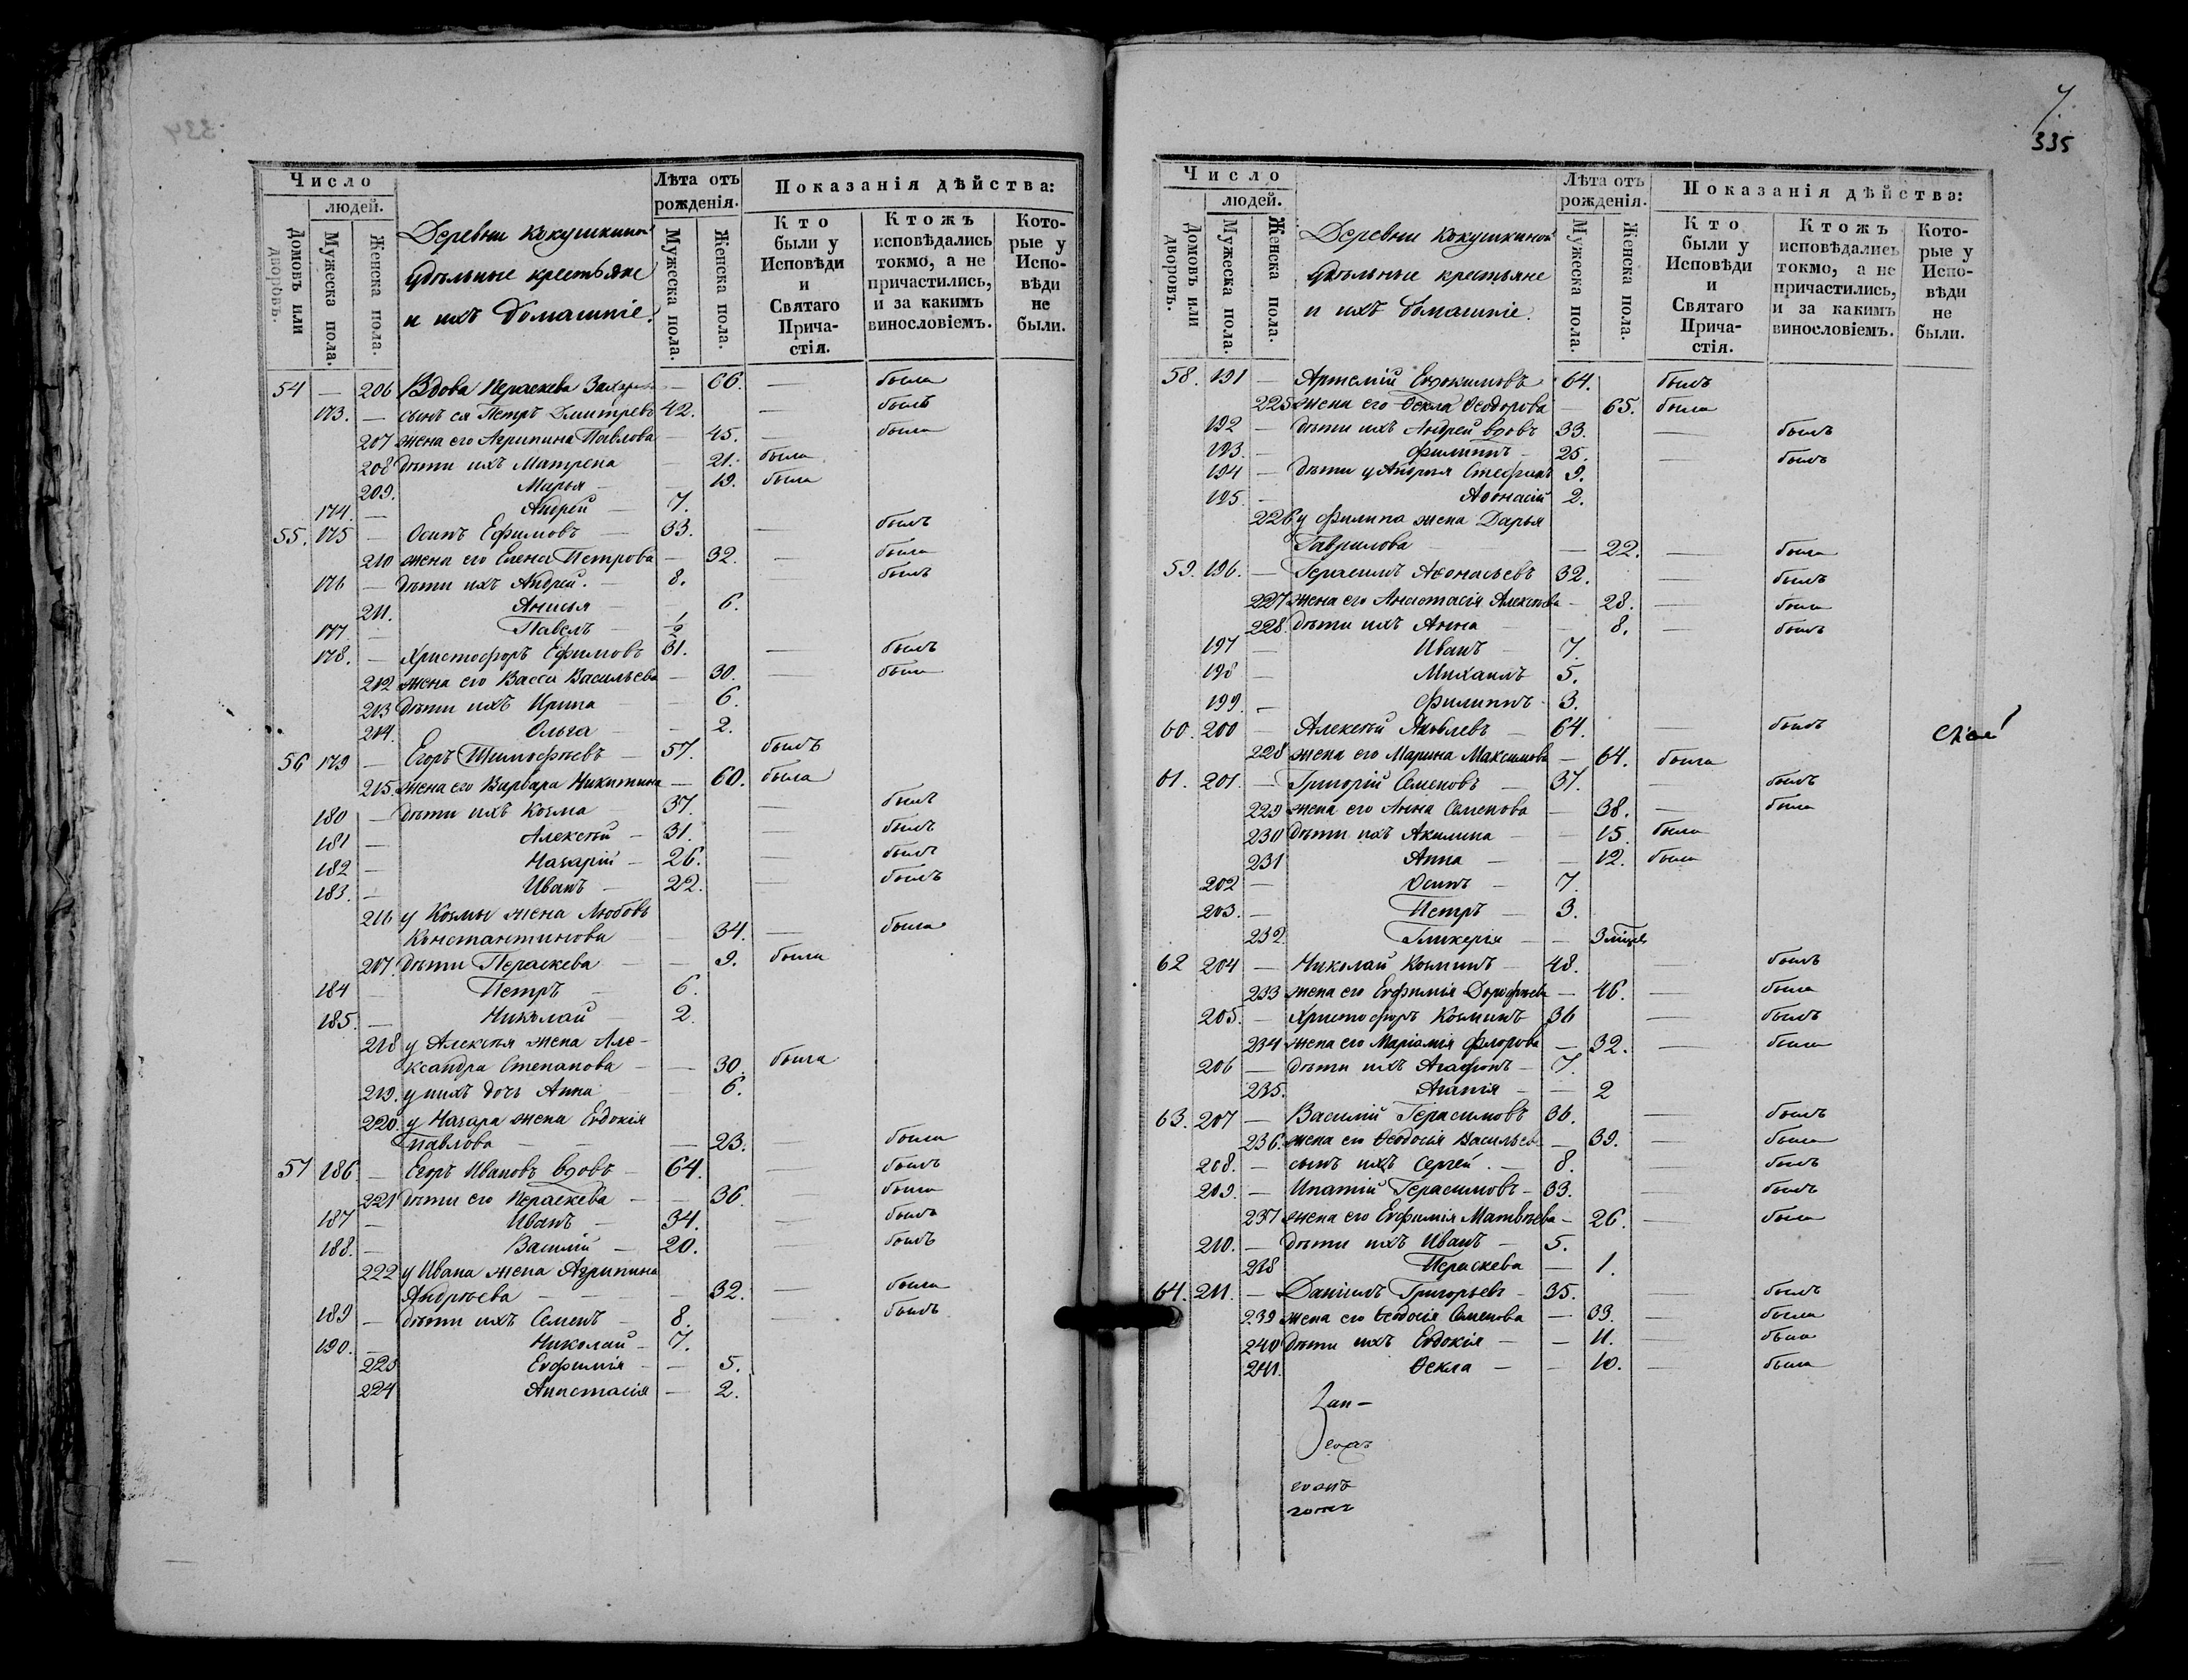 Число
людей.
Домовъ или дворовъ.
Мужеска пола.
Женска пола.
Деревни Кокушкиной
Удѣльные крестьяне
и ихъ домашніе.
Лѣта отъ рожденія.
Мужеска пола.
Женска пола.
Показанія дѣйства:
Кто были у Исповѣди и Святаго Прича-стія.
Ктожъ исповѣдались токмо, а не причастились, и за какимъ винословіемъ.
Кото-рые у Испо-вѣди не были.
54 — 206 Вдова Пераскева — 66. — была
173. — сынъ ея Петръ Дмитревъ 42. — былъ
207 жена его Агрипина Павлова — 45. — была
208 дѣти ихъ Матрена — 21. была
209. Марья — — 19. была
174. — Андрей — 7.
55. 175 — Осипъ Ефимовъ — 33. — былъ
210 жена его Елена Петрова — 32. — была
176 — дѣти ихъ Андрей. — 8. былъ
211. Анисья — — 6.
177. — Павелъ — 1/2
178. — Христофоръ Ефимовъ 31. — былъ
212 жена его Васса Васильева — 30. — была
213 дѣти ихъ Ирина — — 6.
214. Ольга — — 2.
56 179 — Егоръ Тимофѣевъ — 57. былъ
215. жена его Варвара Никитина — 60. была
180 — дѣти ихъ Козма 37. — былъ
181 — Алексѣй — 31. — былъ
182 — Назарій — 26. — былъ
183. — Иванъ — 22. — былъ
216 у Козмы жена Любовь
Константинова — — 34. — была
207. дѣти Пераскева — — 9. была
184 — Петръ — 6.
185. — Николай — 2.
218 у Алексѣя жена Але-
ксандра Степанова — — 30. была
219. у нихъ дочь Анна — 6.
220. у Назара жена Евдокія
Павлова — — — 23. — была
57 186 — Егоръ Ивановъ вдовъ — 64. — былъ
221 дѣти его Пераскева — — 36. была
187 — Иванъ — 34. — былъ
188. — Василій — 20. — былъ
222 у Ивана жена Агрипина
Андрѣева — — — 32. — была
189 — дѣти ихъ Семенъ — 8. — былъ
190. — Николай — 7.
223 Евфимія — — 5.
224 Анастасія — 2.
7.
335
Число
людей.
Домовъ или дворовъ.
Мужеска пола.
Женска пола.
Деревни Кокушкиной
Удѣльные крестьяне
и ихъ домашніе.
Лѣта отъ рожденія.
Мужеска пола.
Женска пола.
Показанія дѣйства:
Кто были у Исповѣди и Святаго Прича-стія.
Ктожъ исповѣдались токмо, а не причастились, и за какимъ винословіемъ.
Кото-рые у Испо-вѣди не были.
58. 191 — Артемій Евдокимовъ 64. былъ
225 жена его Ѳекла Ѳеодорова — 65. была
192 — дѣти ихъ Андрей вдовъ 33. — былъ
193. — Филиппъ — 25. — былъ
194 — дѣти у Андрея Стефанъ 9.
195 — Аѳонасій 2.
226 у Филипа жена Дарья
Гаврилова — 22. — была
59. 196. — Герасимъ Аѳонасьевъ 32. — былъ
227 жена его Анастасія — 28. — была
228. дѣти ихъ Анна — — 8. — былъ
197 — Иванъ — 7.
198 — Михаилъ 5.
199. — Филиппъ — 3.
60. 200 — Алексѣй Яковлевъ — 64. — былъ
228 жена его Марина Максимова — 64. была
61. 201. — Григорій Семеновъ — 37. — былъ
229 жена его Анна Семенова — 38. — была
230 дѣти ихъ Акилина — — 15. была
231 Анна — — 12. была
202 — Осипъ — 7.
203. — Петръ — 3.
232 Гликерія — — 3 мѣсяц
62 204 — Николай Козминъ — 48. — былъ
233 жена его Евфимія Дорофѣева — 46. — была
205. — Христофоръ Козминъ 36 — былъ
234 жена его Маріамія Флорова — 32. — была
206 — дѣти ихъ Агафонъ — 7.
235. Агапія — — 2
63. 207 — Василій Герасимовъ 36. — былъ
236. жена его Ѳеодосія Васильев — 39. — была
208. — сынъ ихъ Сергей. — 8. — былъ
209. — Ипатій Герасимовъ — 33. — былъ
237 жена его Евфимія Матвѣева — 26. — была
210. — дѣти ихъ Иванъ — 5.
238 Пераскева — 1.
64. 211. — Даніилъ Григорьевъ — 35. — былъ
239 жена его Ѳеодосія Семенова — 33. — была
240 дѣти ихъ Евдокія — — 11. — была
241. Ѳекла — — 10. — была